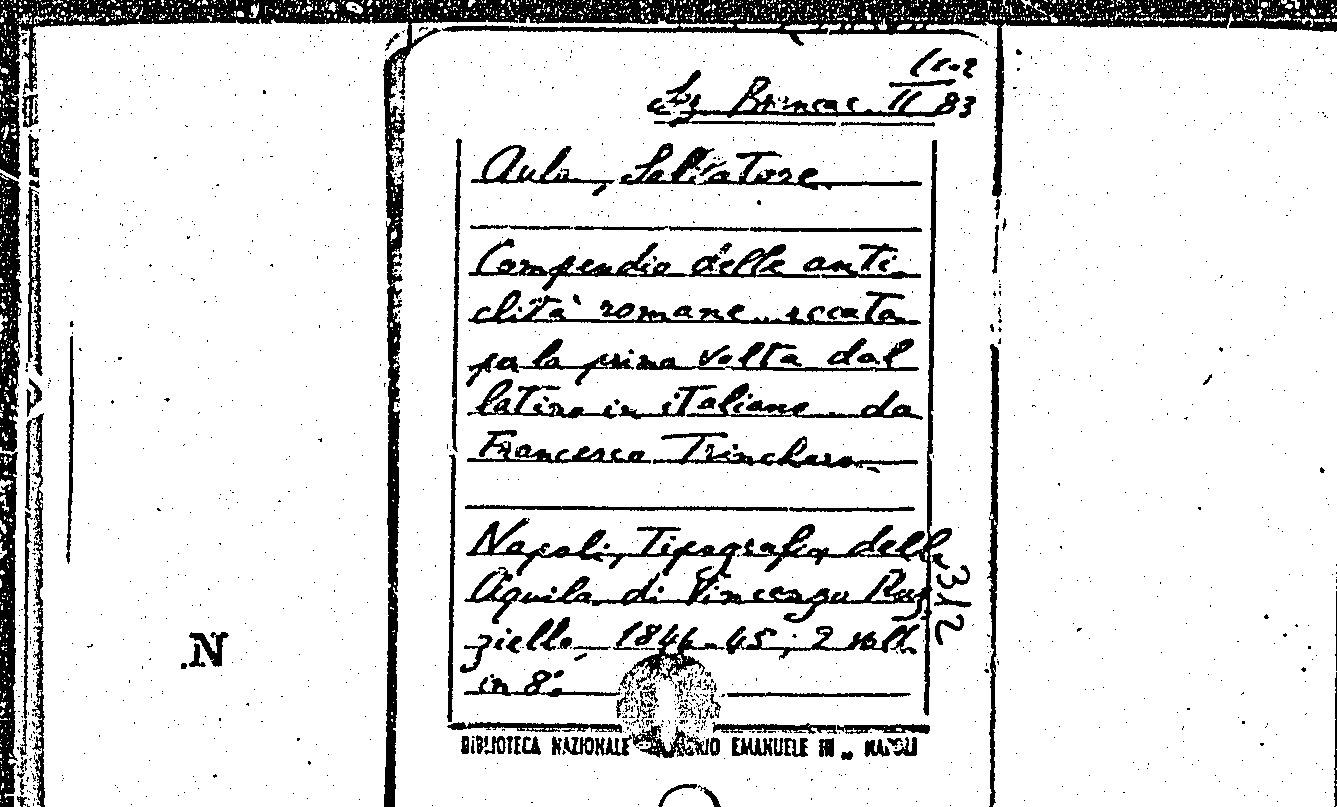 Sez Brancac. II B3
Aula, Salvatore
Compendio delle anti-
chità romane recato
per la prima volta dal
latino in italiano da
Francesco Trinchera
Napoli, Tipografia della
Aquila di Vincenzo Ruz
ziello, 1846-45; 2 voll.
in 8°.
312
BIBLIOTECA NAZIONALE EMANUELE III „ NAPOLI
.N